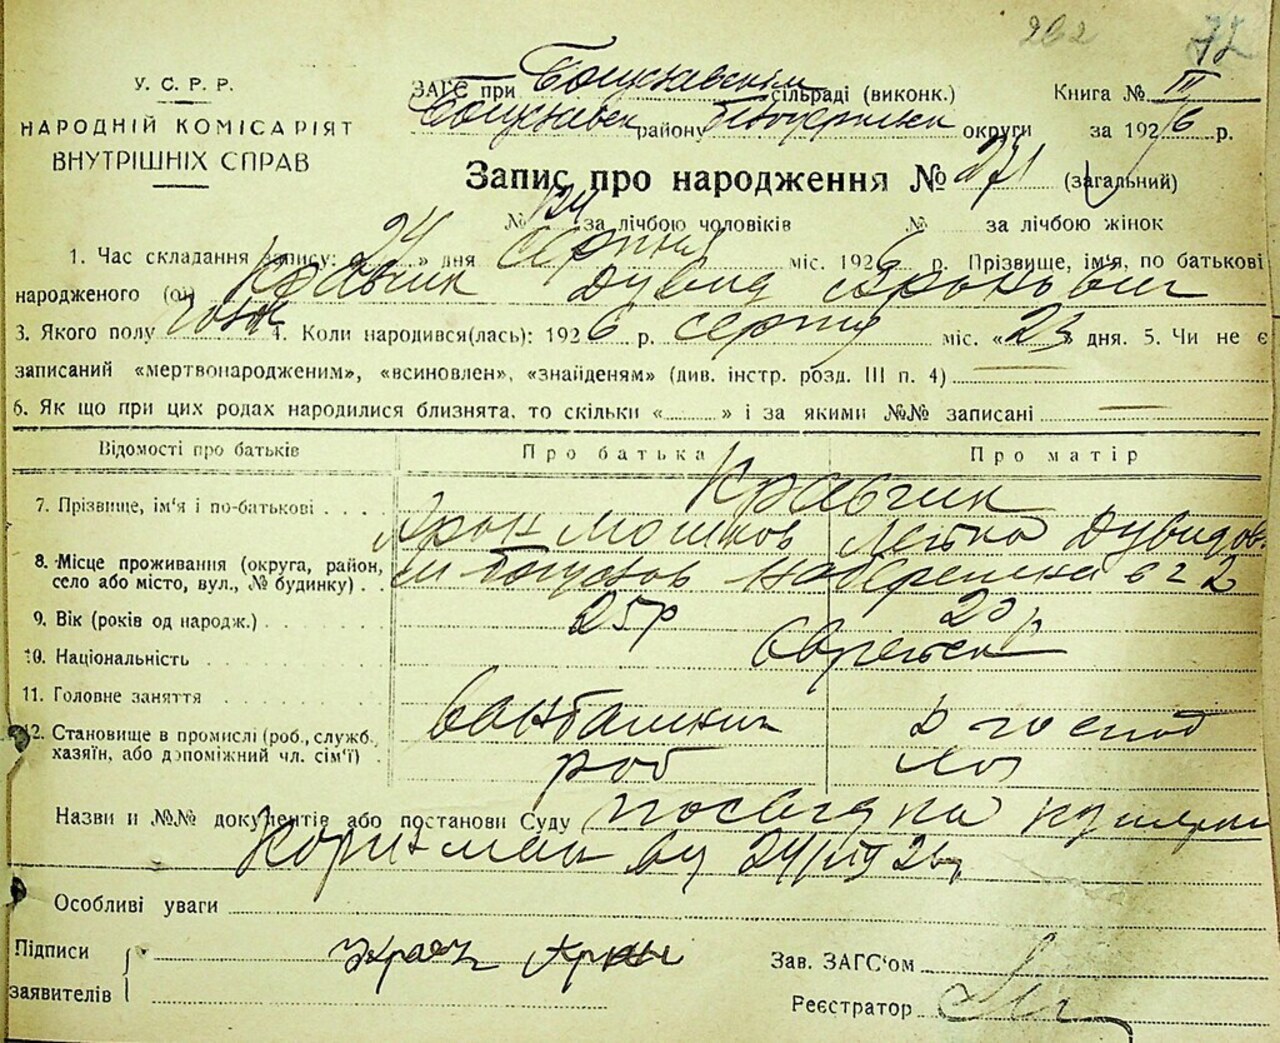 262 72
У. С. Р. Р.
НАРОДНІЙ КОМІСАРІЯТ
ВНУТРІШНІХ СПРАВ
ЗАГС при Богуславскім сільраді (виконк.) Книга № III
Богуславск району Білоцерківск округи за 1926 р.
Запис про народження № 271 (загальний)
№ 124 за лічбою чоловіків № за лічбою жінок
1. Час складання запису: « 24 » дня серпня міс. 1926 р. Прізвище, ім'я, по батькові
народженого (ої) Кравчик Дувид Аронович
3. Якого полу чолов 4. Коли народився(лась): 1926 р. серпня міс. «23» дня. 5. Чи не є
записаний «мертвонародженим», «всиновлен», «знайденям» (див. інстр. розд. III п. 4)
6. Як що при цих родах народилися близнята, то скільки « » і за якими №№ записані
Відомості про батьків Про батька Про матір
7. Прізвище, ім'я і по-батькові Кравчик
Арон Мошков Лейка Дувидов.
8. Місце проживання (округа, район, село або місто, вул., № будинку) м Богуслав Набережна 2
9. Вік (років од народж.) 25р 20 р
10. Національність Еврейск
11. Головне заняття д господ
12. Становище в промислі (роб., служб., хазяїн, або допоміжний чл. сім'ї) роб
Назви и №№ документів або постанови Суду посвідка
24/VIII 26р
Особливі уваги
Підписи
заявителів
Зав. ЗАГС'ом
Реєстратор